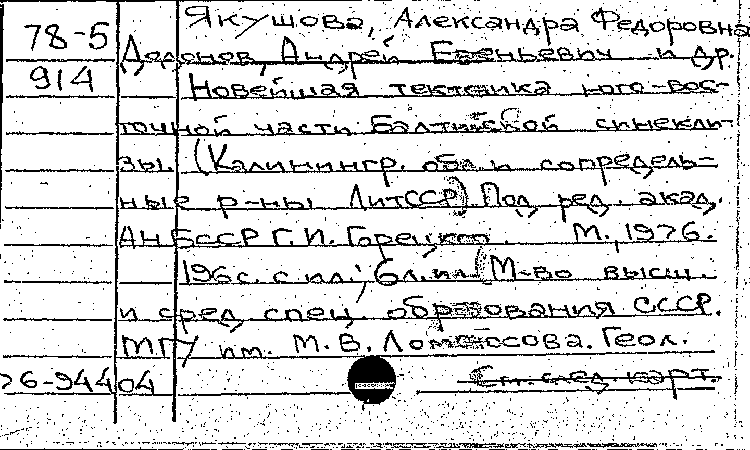 78-5 Якушова, Александра Федоровна
Додонов, Андрей Евгеньевич и др.
914 Новейшая тектоника юго-вос-
точной части Балтийской синекли-
зы. (Калинингр. обл. и сопредель-
ные р-ны ЛитССР) Под ред. акад.
АН БССР Г. И. Горецкого. М., 1976.
196с. с ил.; 6л. ил. (М-во высш.
и сред. спец. образования СССР.
МГУ им. М. В. Ломоносова. Геол.
76-94404 См. след. карт.